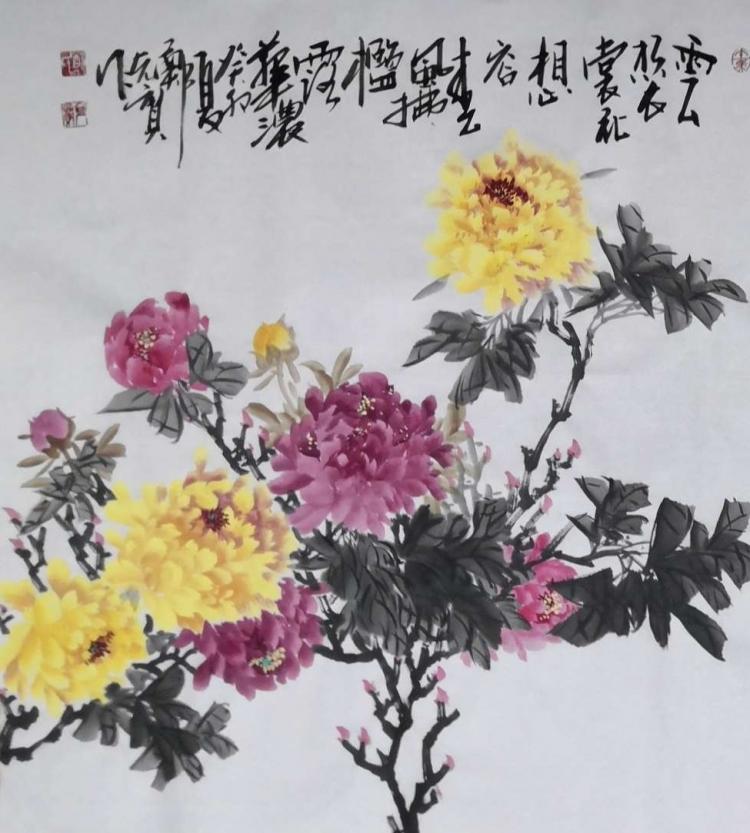 雲
想衣
裳花
想
容
春
風拂
檻
露
華濃
癸卯
夏
作